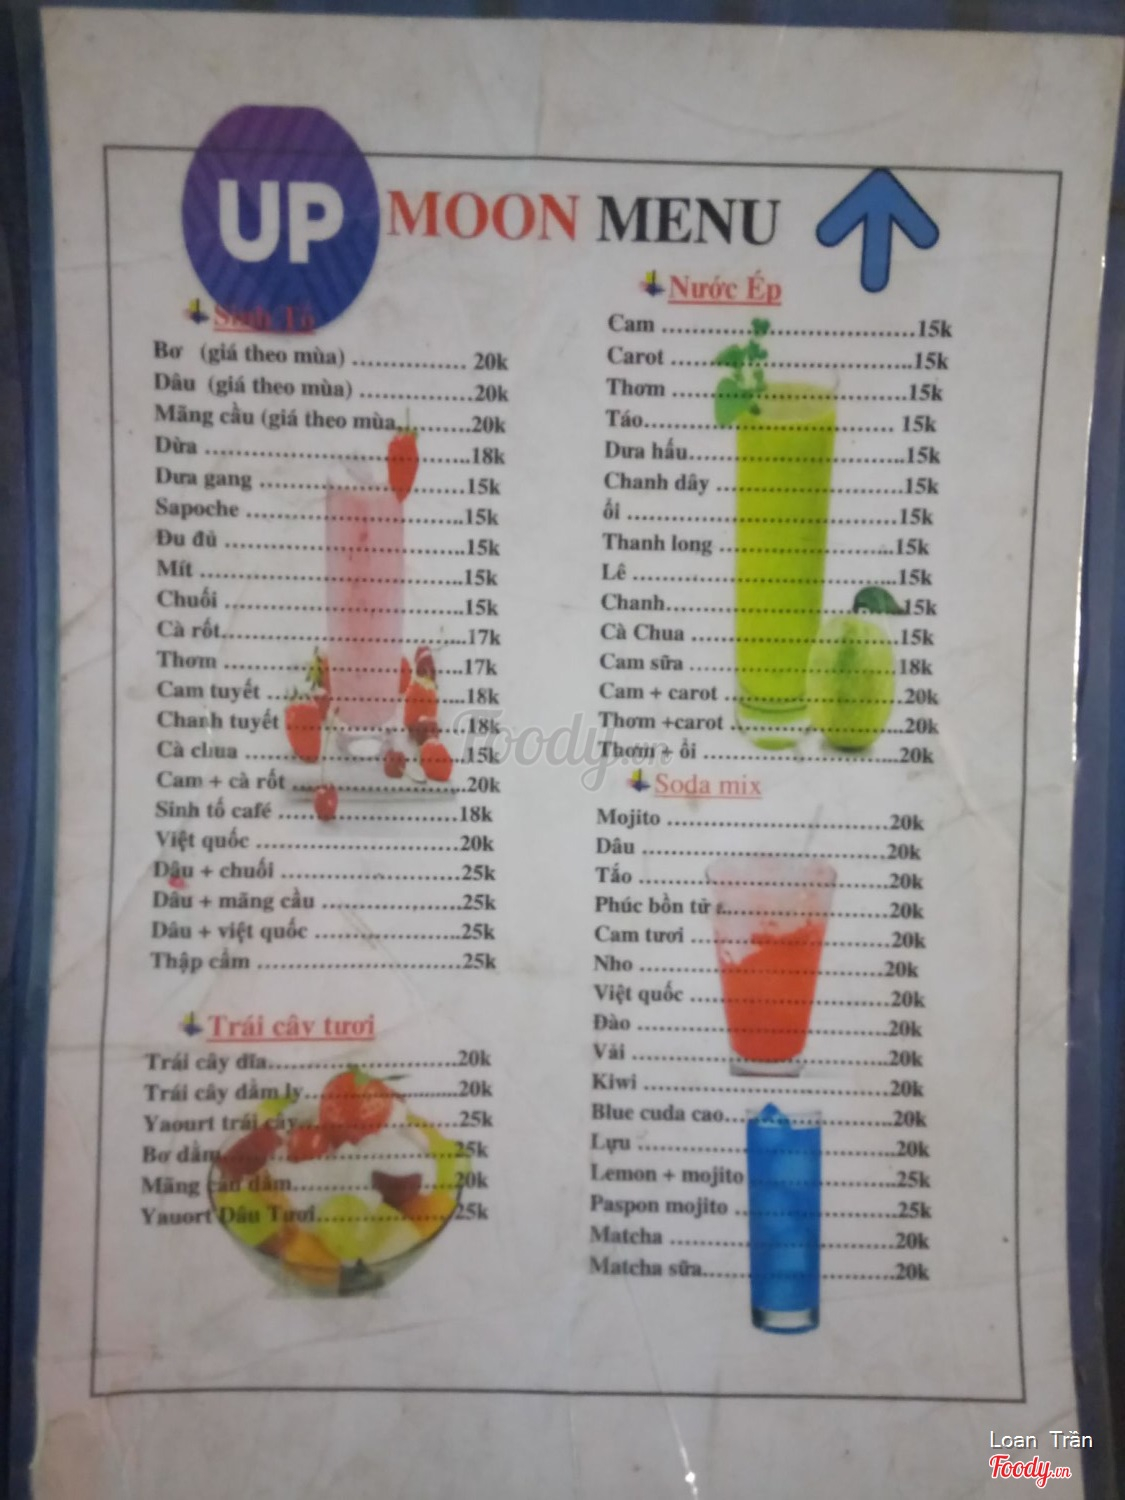 UP MOON MENU
Sinh Tố
Bơ (giá theo mùa) .................. 20k
Dâu (giá theo mùa) ..................20k
Mãng cầu (giá theo mùa............20k
Dừa ..........................................18k
Dưa gang .................................15k
Sapoche ...................................15k
Đu đủ .......................................15k
Mít ...........................................15k
Chuối .......................................15k
Cà rốt.......................................17k
Thơm .......................................17k
Cam tuyết ................................18k
Chanh tuyết .............................18k
Cà chua ...................................15k
Cam + cà rốt ............................20k
Sinh tố café .............................18k
Việt quốc .................................20k
Dâu + chuối .............................25k
Dâu + mãng cầu ......................25k
Dâu + việt quốc .......................25k
Thập cẩm ................................25k
Trái cây tươi
Trái cây dĩa..............................20k
Trái cây dầm ly........................20k
Yaourt trái cây.........................25k
Bơ dầm....................................25k
Mãng cầu dầm.........................20k
Yauort Dâu Tươi......................25k
Nước Ép
Cam ........................................15k
Carot .......................................15k
Thơm ......................................15k
Táo.......................................... 15k
Dưa hấu...................................15k
Chanh dây ...............................15k
ổi .............................................15k
Thanh long ..............................15k
Lê ............................................15k
Chanh......................................15k
Cà Chua ..................................15k
Cam sữa ..................................18k
Cam + carot ............................20k
Thơm +carot ...........................20k
Thơm + ổi ...............................20k
Soda mix
Mojito .....................................20k
Dâu .........................................20k
Tắo ..........................................20k
Phúc bồn tử ............................20k
Cam tươi .................................20k
Nho .........................................20k
Việt quốc ................................20k
Đào .........................................20k
Vải ..........................................20k
Kiwi ........................................20k
Blue cuda cao..........................20k
Lựu .........................................20k
Lemon + mojito ......................25k
Paspon mojito .........................25k
Matcha ....................................20k
Matcha sữa..............................20k
Foody.vn
Loan Trần
Foody.vn